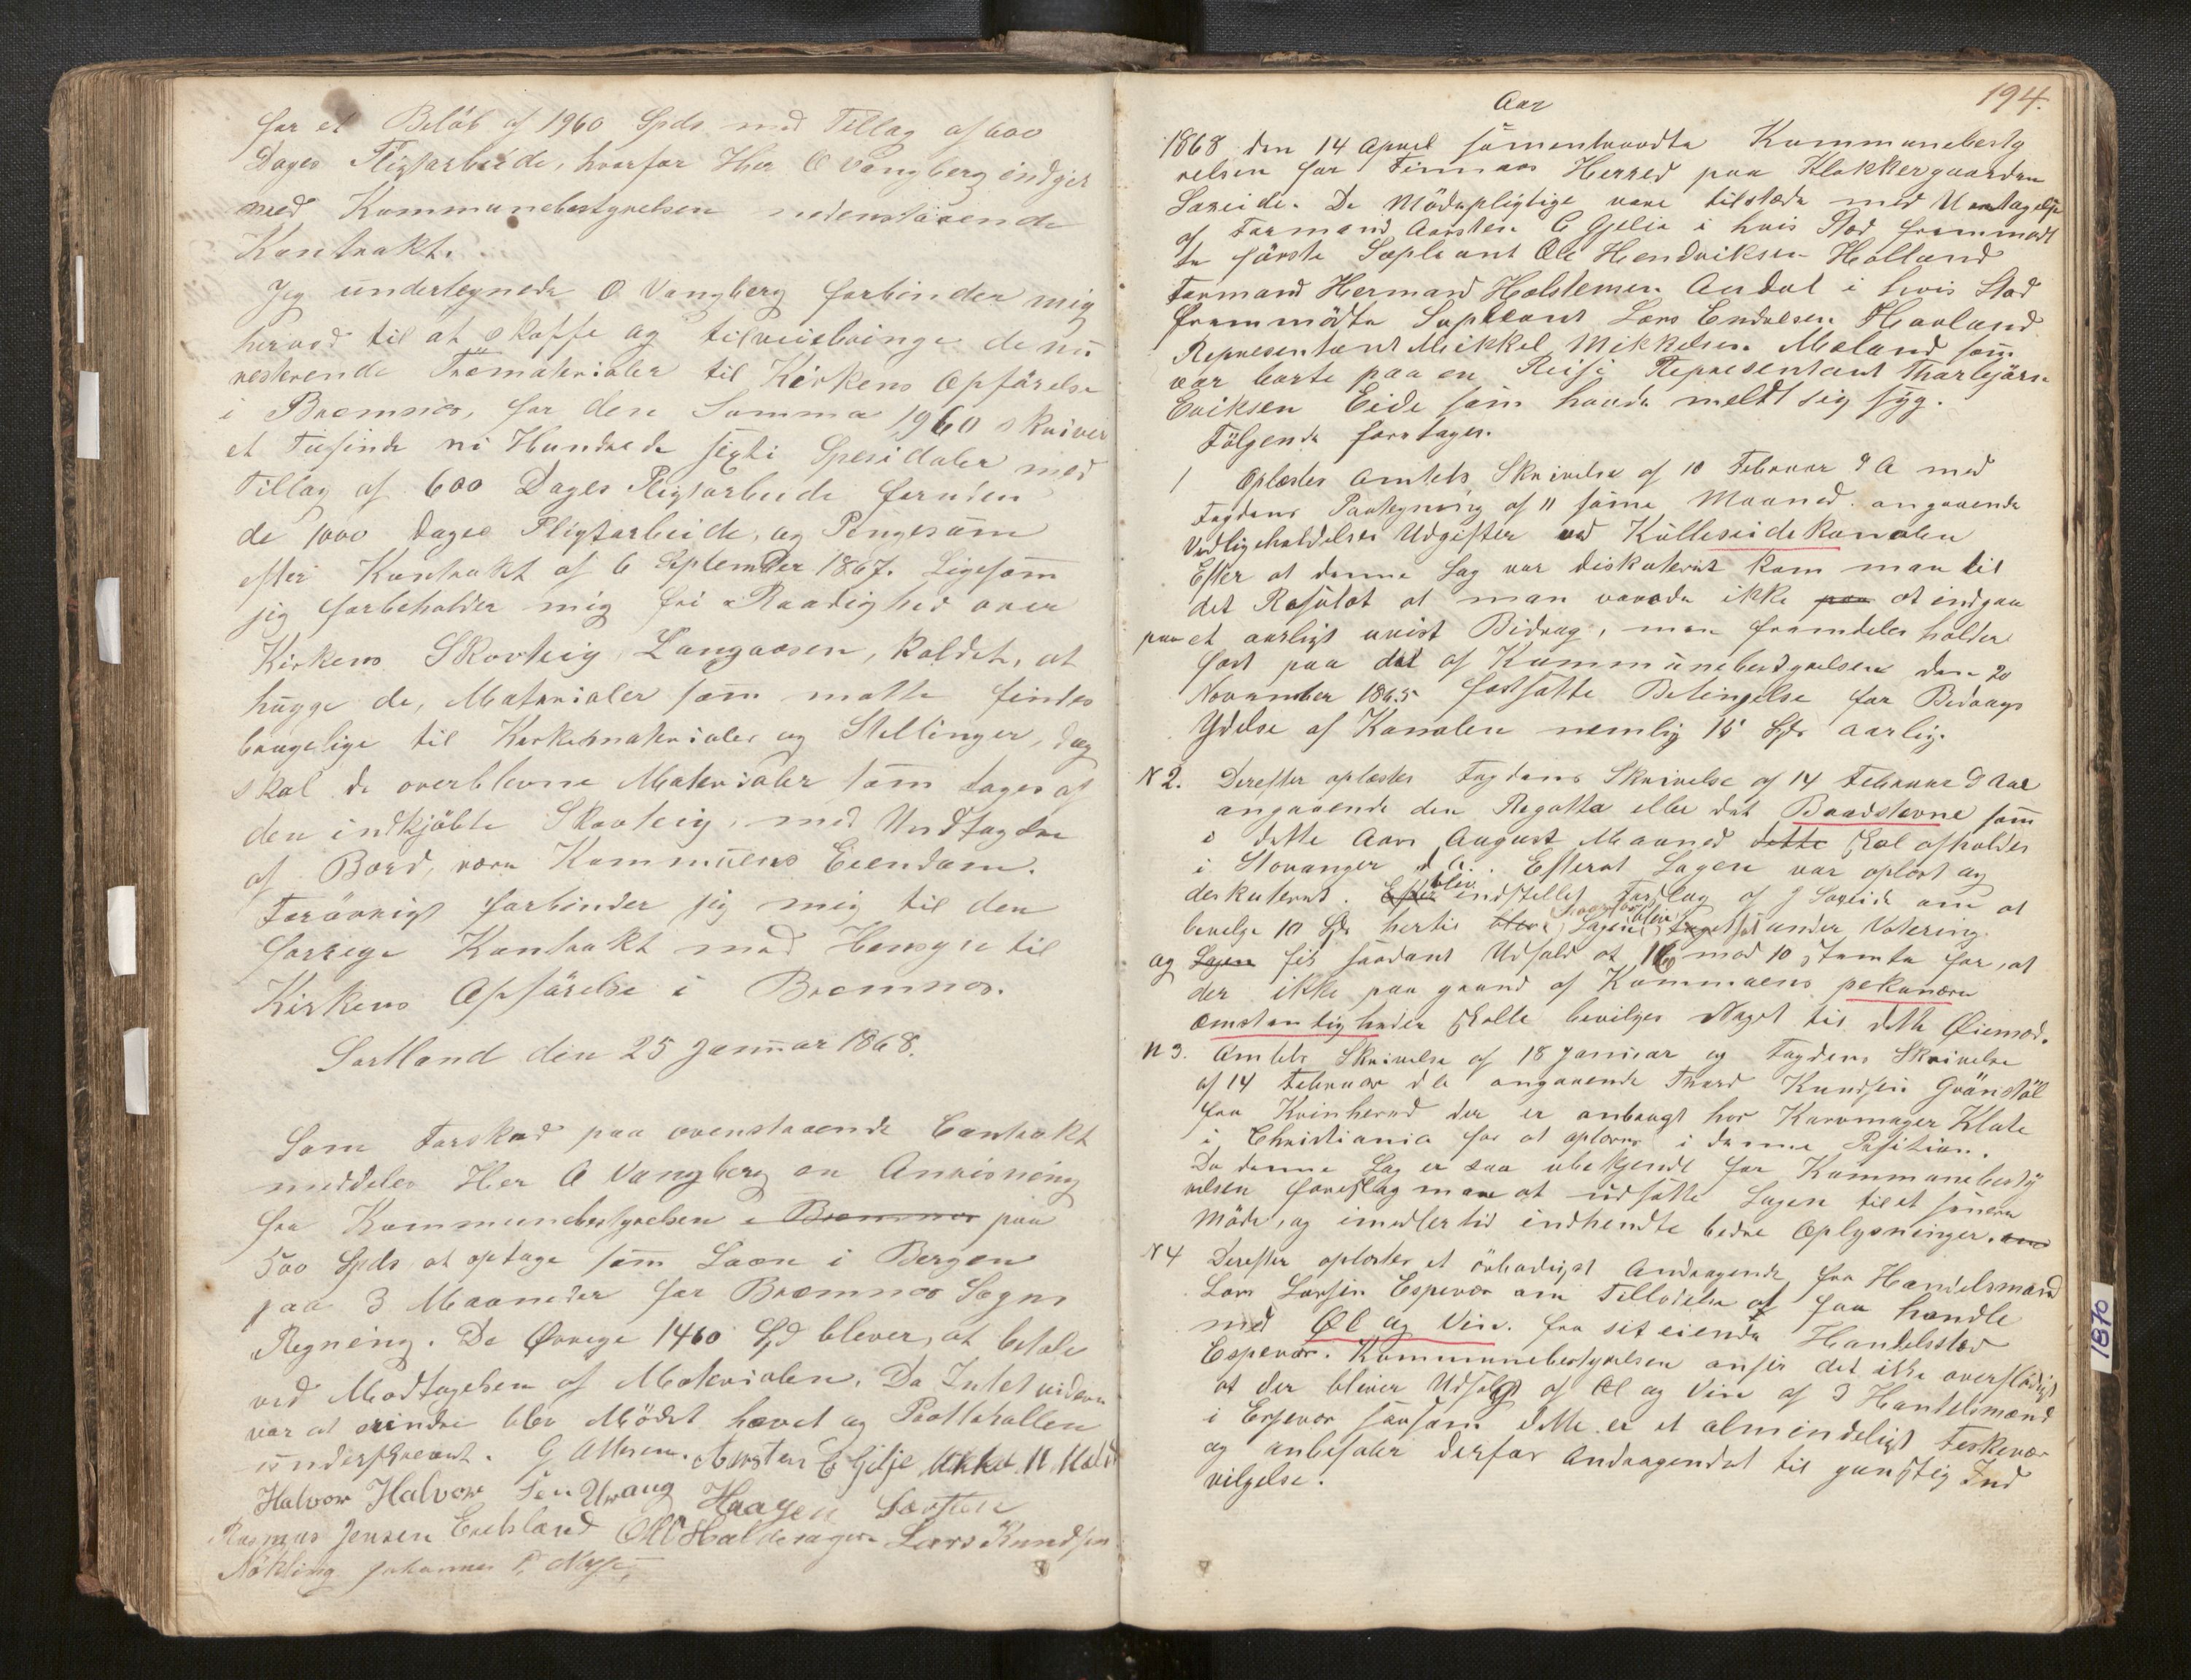 for et Beløb af 1960 Spds med Tillag af 600
Dages Pligtarbeide, hvorfor Her O Vangberg indgir
med Kommunebestyrelsen nedenstaaende
Kontrakt.
Jeg undertegnede O Vangberg forbinder mig
herved til at skaffe og tilveiebringe de nu
resterende Træmaterialer til Kirkens Opførelse
i Bremnes, for den Somma 1960 skriver
et Tusinde ni Hundrede sexti Spesidaler med
Tillag af 600 Dages Pligtarbeide foruden
de 1000 Dages Pligtarbeide, og Pengesum
efter Kontrakt af 6 September 1867. Ligesom
jeg forbeholder mig fri Raadighed over
Kirkens Skovteig Langaasen, kaldet, at
hugge de, Materialer som matte findes
brugelige til Kirkematerialer og Stellinger, dog
skal de overblevne Materialer som tages af
den indkjøbte Skovteig, med Undtagelse
af Bord, være Kommunens Eiendom.
Forøvrigt forbinder jeg mig til den
forrige Kontrakt med Hensyn til
Kirkens Opførelse i Bremnes.
Sortland den 25 Januar 1868.
Som Forskud paa ovenstaaende Contrakt
meddeles Her O Vangberg en Anvisning
fra Kommunebestyrelsen i Bremnes paa
500 Spds at optage som Laan i Bergen
paa 3 Maaneder for Bremnes Sogns
Regning. De Øvrige 1460 Spd bliver, at betale
ved Modtagelsen af Materialen. Da Intet videre
var at erindre blev Mødet hævet og Protokollen
underskrevet. G Ottesen. Aarsten C Gjelje Mikkel M. Mæld
Halvor Halvorsen Urang Haagen Larsen
Rasmus Jensen Enebland Ole Halderager Lars Knudsen
Nøkling Johannes P.
194.
Aar
1868 den 14 April samentraadte Kommunebesty
relsen for Finnaas Herred paa Klokkergaarden
Sareide. De Mødepligtige vare tilstæde med Undtagelse
af Formand Aarsten C Gjelie i hvis Stod fremmødt
te første Supleant Ole Hendriksen Halland
Formand Hermand Holstensen Aardal i hvis Stad
fremmødte Supleant Lars Endresen Havland
Representant Mikkel Mikkelsen Mæland som
var borte paa en Reise Representant Thorbjørn
Eriksen Eide som havde meldt sig syg.
Følgende foretages.
1 Oplæstes Amtets Skrivelse af 10 Februar d A med
Fogdens Paategning af 11 same Maaned angaaende
Vedligeholdelses Udgifter ved Kulleseidekanalen
Efter at denne Sag var diskuteret kom man til
det Resultat at man vovede ikke paa at indgaa
paa et aarligt uvist Bidrag, men fremdeles holder
fast paa det af Kommunebestyrelsen den 20
November 1865 fastsatte Betingelse for Bidrags
Ydelse af Kanalen nemlig 15 Spd aarlig.
N 2. Derefter oplæstes Fogdens Skrivelse af 14 Februar d Aar
angaaende den Regatta eller det Baadstevne som
i dette Aars August Maaned dette skal afholdes
i Stavanger d A. Efterat Sagen var oplæst og
deskuteret. Efter blev indstillet Forslag af J Sareide om at
bevelge 10 Spd hertil blev Sagen blev taget sat under Votering.
og Sagen fik saadant Udfald at 16 mod 10 stemte for, at
der ikke paa grund af Kommunens pekunære
omstændigheder skulle bevilges Noget til dette Øiemed.
N 3. Amtets Skrivelse af 18 Januar og Fogdens Skrivelse
af 14 Februar d A angaaende Knudsen Grønstøl
fra Kvinherred der er anbragt hos Kurvmager Klute
i Christiania for at oplæres i denne Posission.
Da denne Sag er saa ubekjendt for Kommunebesty
relsen foreslog man at udsætte Sagen til et senere
Møde, og imidlertid indhendte bedre Oplysninger. om
N 4 Derefter oplæstes et ørbødigst Andragende fra Handelsmand
Lars Larsen Espevær om Tilladelse at faa handle
med Øl og Vin. fra sit eiende Handelssted
Espevær. Kommunebestyrelsen anser det ikke overflødigt
at der bliver Udsalgt af Øl og Vin af 3 Handelsmænd
i Espevær saasom dette er et almindeligt Feskevær
og anbefaler derfor Andragendet til gunstig Ind
vilgelse.
1870